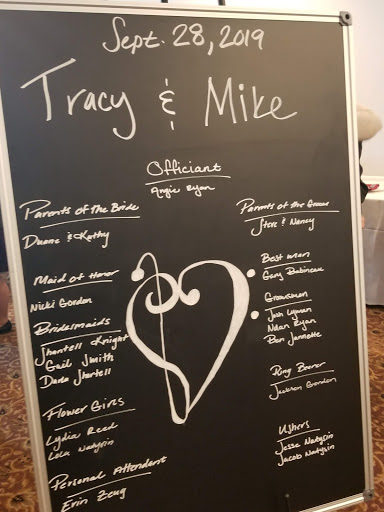 Sept. 28, 2019
Tracy & Mike
Officiant
Angie Ryan
Parents of the Bride
Duane & Kathy
Maid of Honor
Nicki Gordon
Bridesmaids
Shantell Knight
Gail Smith
Dana Shortell
Flower Girls
Lydia Reed
Lola Nadzrin
Personal Attendant
Erin Zeug
Parents of the Groom
Steve & Nancy
Best man
Gary Babineau
Groomsman
Josh Lyman
Nolan Ryan
Ben Jannette
Ring Bearer
Jackson Gordon
Ushers
Jesse Nadzrin
Jacob Nadzrin